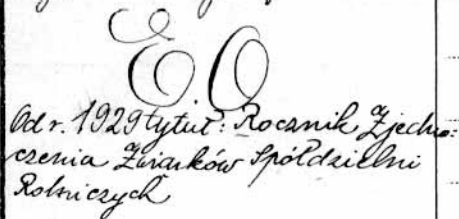 E.O
Od r. 1929 tytuł: Rocznik Zjedno-
czenia Związków Spółdzielni
Rolniczych